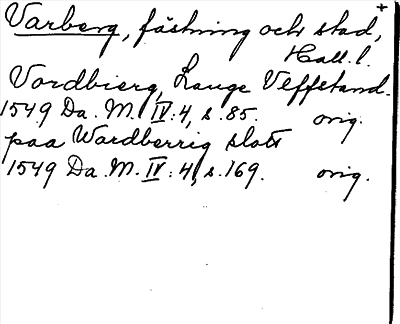 Varberg, fästning och stad, +
Hall. l.
Vordbierg, Lauge Veffstand.
1549 Da. M. IV:4, s. 85. orig.
paa Wardberrig slott
1549 Da. M. IV:4, s. 169. orig.